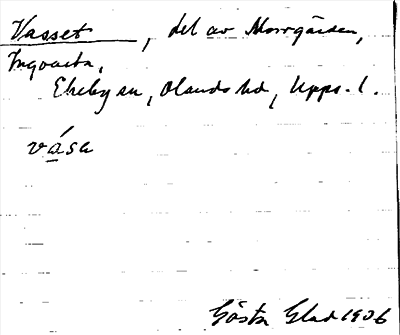 Vasset, del av Norrgården,
Ingvasta,
Ekeby sn, Olands hd, Upps. l.
våsa
Gösta Glad 1926